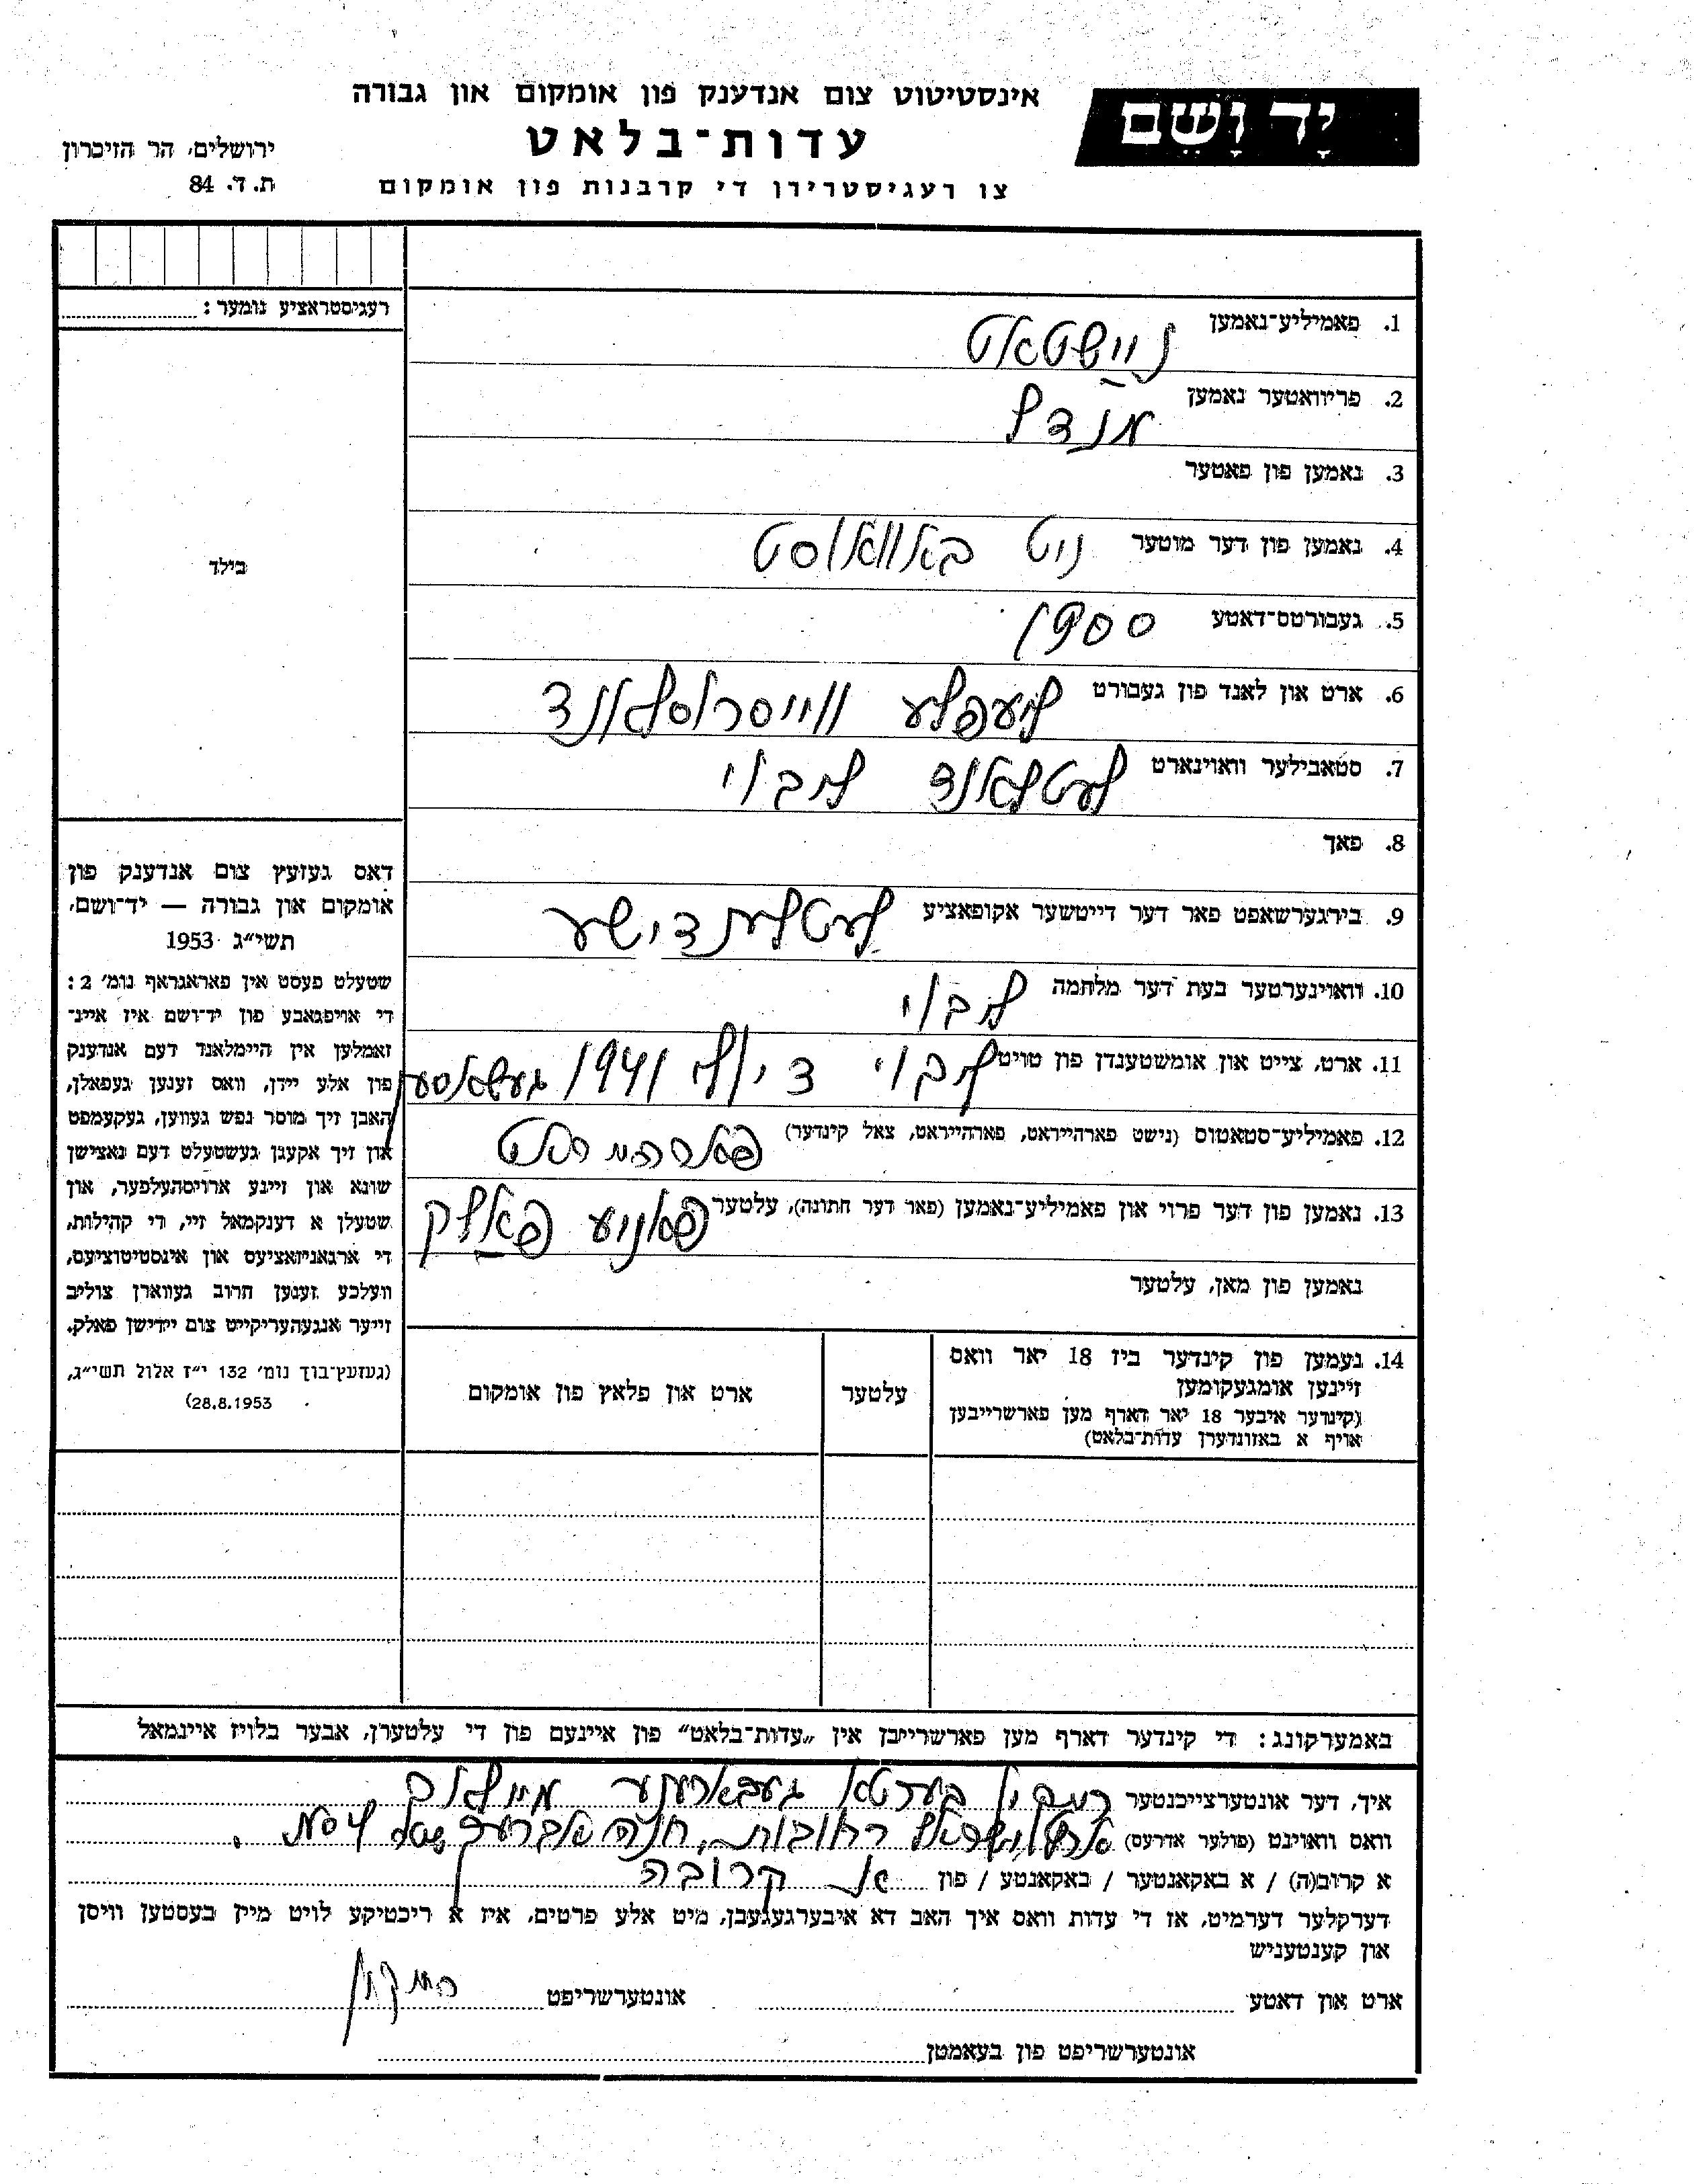 יָד וָשֵׁם
אינסטיטוט צום אנדענק פון אומקום און גבורה
עדות־בלאט
צו רעגיסטרירן די קרבנות פון אומקום
ירושלים, הר הזיכרון
ת. ד. 84
רעגיסטראציע נומער:
בילד
1. פאמיליע־נאמען נײַשטאט
2. פריוואטער נאמען מנדל
3. נאמען פון פאטער
4. נאמען פון דער מוטער ניט באוואוסט
5. געבורטס־דאטע 1900
6. ארט און לאנד פון געבורט ליעפלע ווייסרוסלאנד
7. סטאבילער וואוינארט לעטלאנד
8. פאך
9. בירגערשאפט פאר דער דייטשער אקופאציע
10. וואוינערטער בעת דער מלחמה
11. ארט, צייט און אומשטענדן פון טויט 1941
12. פאמיליע־סטאטוס (נישט פארהייראט, פארהייראט, צאל קינדער)
13. נאמען פון דער פרוי און פאמיליע־נאמען (פאר דער חתונה), עלטער פאניע פאלק
נאמען פון מאן, עלטער
14. נעמען פון קינדער ביז 18 יאר וואס
זיינען אומגעקומען
(קינדער איבער 18 יאר דארף מען פארשרייבען
אויף א באזונדערן עדות־בלאט)
עלטער
ארט און פלאץ פון אומקום
דאס געזעץ צום אנדענק פון
אומקום און גבורה — יד־ושם,
תשי״ג 1953
שטעלט פעסט אין פאראגראף נומ׳ 2:
די אויפגאבע פון יד־ושם איז איינ־
זאמלען אין היימלאנד דעם אנדענק
פון אלע יידן, וואס זענען געפאלן,
האבן זיך מוסר נפש געווען, געקעמפט
און זיך אקעגן געשטעלט דעם נאצישן
שונא און זיינע ארויסהעלפער, און
שטעלן א דענקמאל זיי, די קהילות,
די ארגאניזאציעס און אינסטיטוציעס,
וועלכע זענען חרוב געווארן צוליב
זייער אנגעהעריקייט צום יידישן פאלק.
(געזעץ־בוך נומ׳ 132 י״ז אלול תשי״ג,
28.8.1953)
באמערקונג: די קינדער דארף מען פארשרייבן אין „עדות־בלאט” פון איינעם פון די עלטערן, אבער בלויז איינמאל
איך, דער אונטערצייכנטער בערטא
וואס וואוינט (פולער אדרעס) רחובות,
א קרוב(ה) / א באקאנטער / באקאנטע / פון קרובה
דערקלער דערמיט, אז די עדות וואס איך האב דא איבערגעגעבן, מיט אלע פרטים, איז א ריכטיקע לויט מיין בעסטען וויסן
און קענטעניש
ארט און דאטע
אונטערשריפט
אונטערשריפט פון בעאמטן